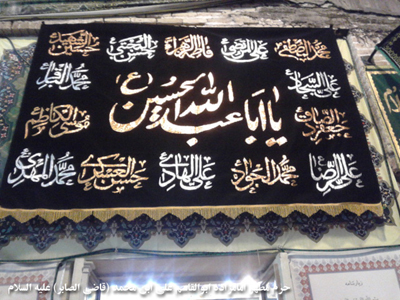 محمد المصطفی علی المرتضی فاطمة الزهراء حسن المجتبی حسین الشهید
علی السجاد محمد الباقر
یا اباعبدالله الحسین (ع)
جعفر الصادق موسی الکاظم
علی الرضا محمد الجواد علی الهادی حسن العسکری محمد المهدی
حرم مطهر امامزاده ابوالقاسم علی ابن محمد (قاضی الصابر) علیه السلام